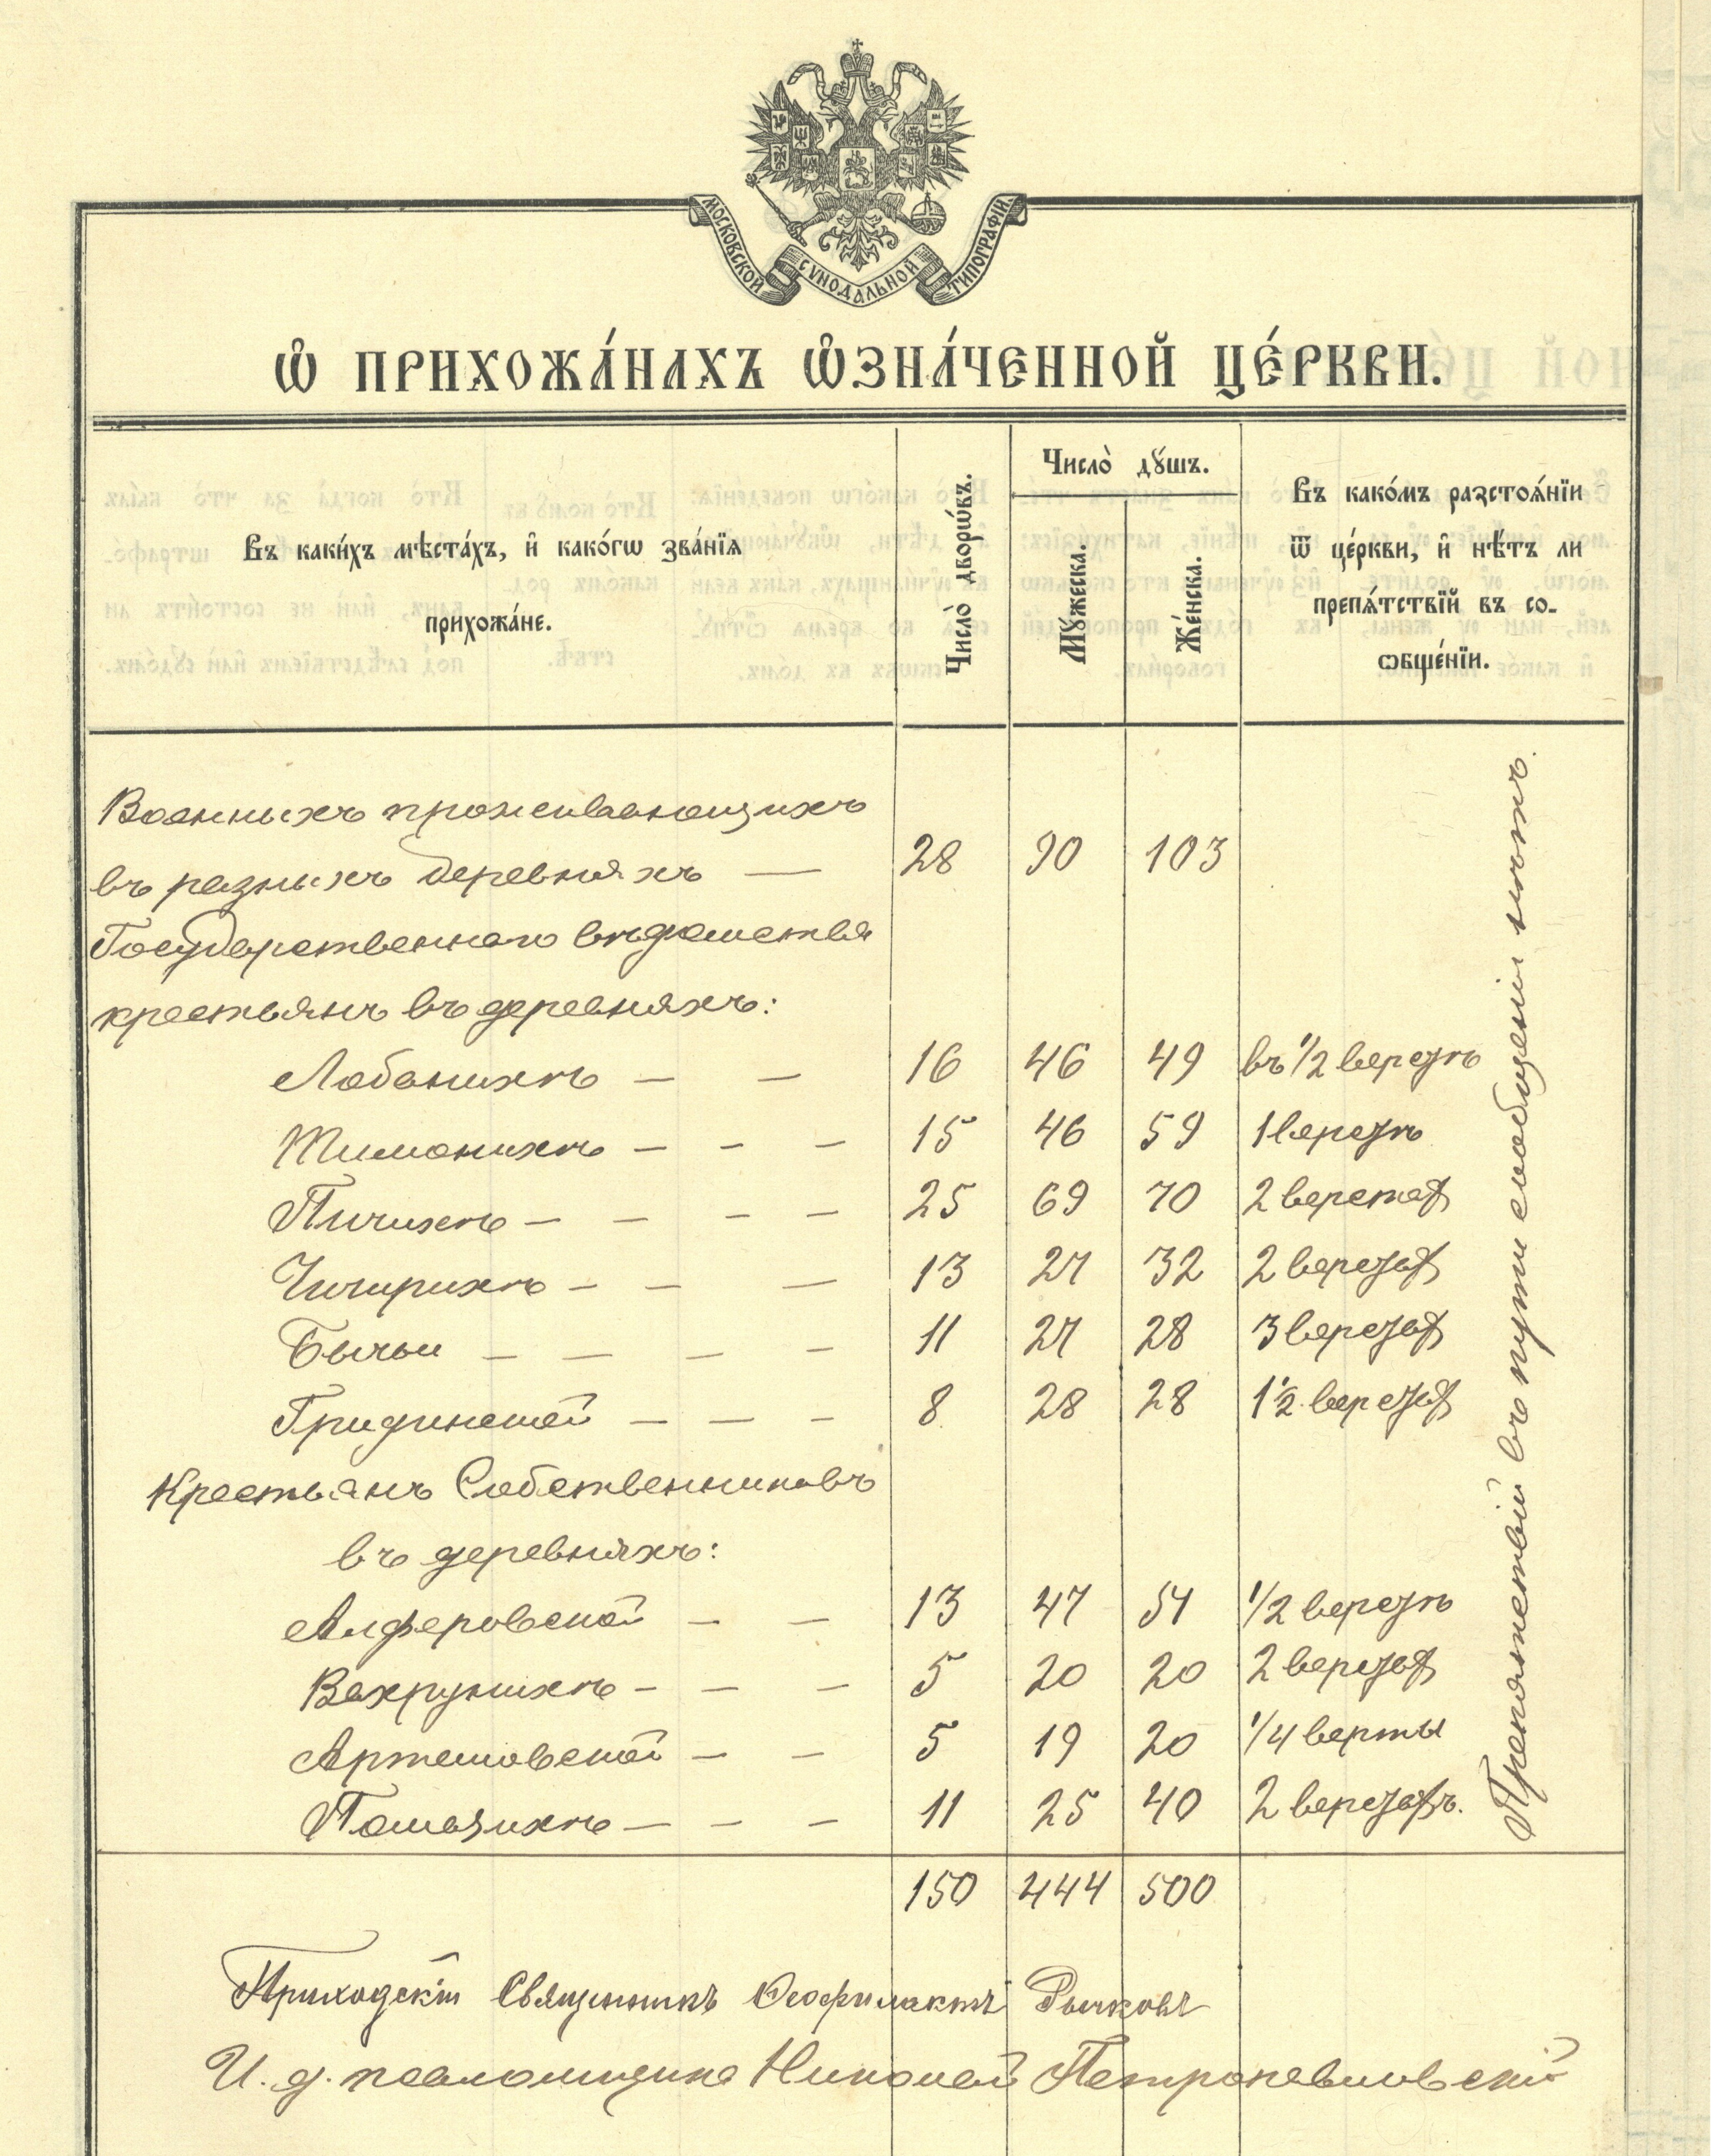 МОСКОВСКОЙ СѴНОДАЛЬНОЙ ТИПОГРАФІИ
Ѡ ПРИХОЖА́НАХЪ ѠЗНА́ЧЕННОЙ ЦЕ́РКВИ.
Въ каки́хъ мѣста́хъ, и҆ како́гѡ зва́нїѧ
прихожа́не.
Число̀ дворѡ́въ.
Число̀ дꙋ́шъ.
Мꙋ́жеска.
Же́нска.
Въ како́мъ разстоѧ́нїи
ѿ це́ркви, и҆ нѣ́тъ ли
препѧ́тствїй въ со-
ѻбще́нїи.
Военныхъ проживающихъ
въ разныхъ деревняхъ — 28 90 103
Государственнаго вѣдомства
крестьянъ въ деревняхъ:
Лобанихѣ — — 16 46 49 въ 1/2 верстѣ
Тимонихѣ — — — 15 46 59 1 верстѣ
Пичихѣ — — — — 25 69 70 2 верстах
Чичирихѣ — — — 13 27 32 2 верстах
Бычьи — — — — 11 27 28 3 верстах
Гридинской — — — 8 28 28 1 1/2 верстах
Крестьянъ Собственниковъ
въ деревняхъ:
Алферовской — — 13 47 51 1/2 верстѣ
Вахрушихѣ — — — 5 20 20 2 верстах
Артемовской — — 5 19 20 1/4 версты
— — — 11 25 40 2 верстахъ.
Препятствій въ пути сообщеніи нѣтъ.
150 444 500
Приходскій Священникъ Ѳеофилактъ Рычковъ
И. д. псаломщика Николай Петропавловскій